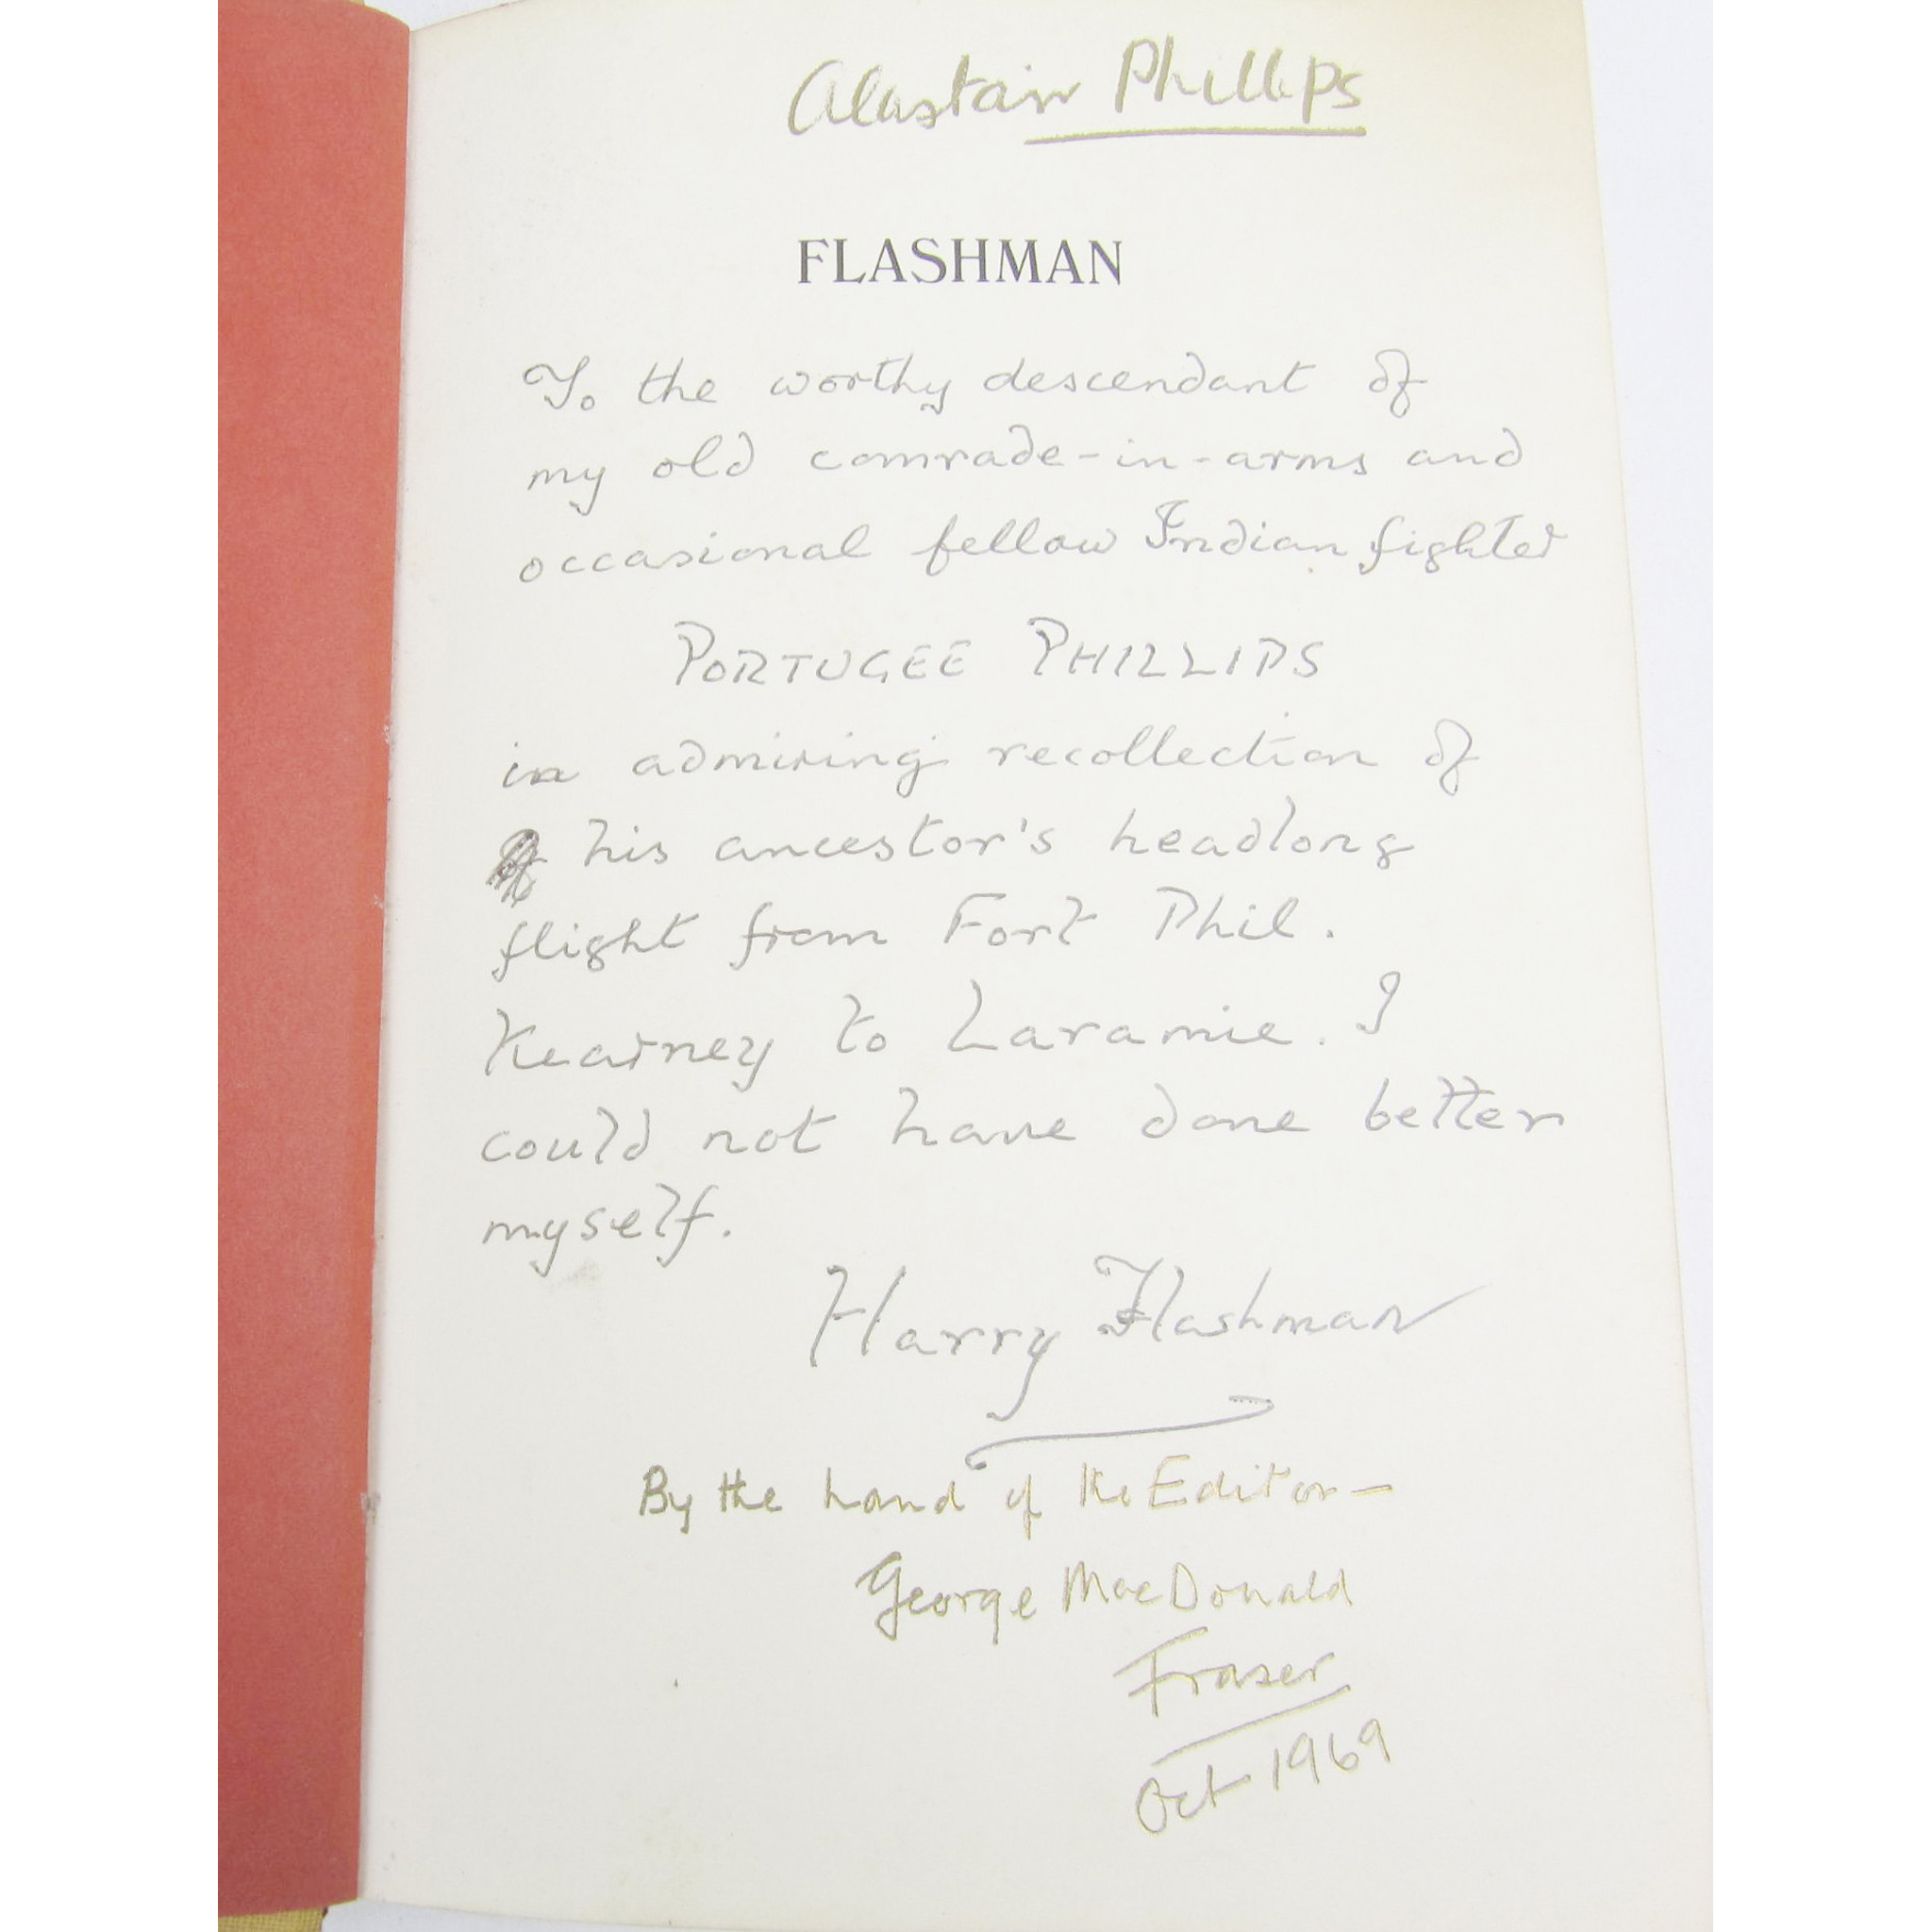 Alastair Phillips
FLASHMAN
To the worthy descendant of
my old comrade-in-arms and
occasional fellow Indian fighter
PORTUGEE PHILLIPS
in admiring recollection of
his ancestor's headlong
flight from Fort Phil.
Kearney to Laramie. I
could not have done better
myself.
Harry Flashman
By the hand of the Editor—
George MacDonald
Fraser
Oct 1969